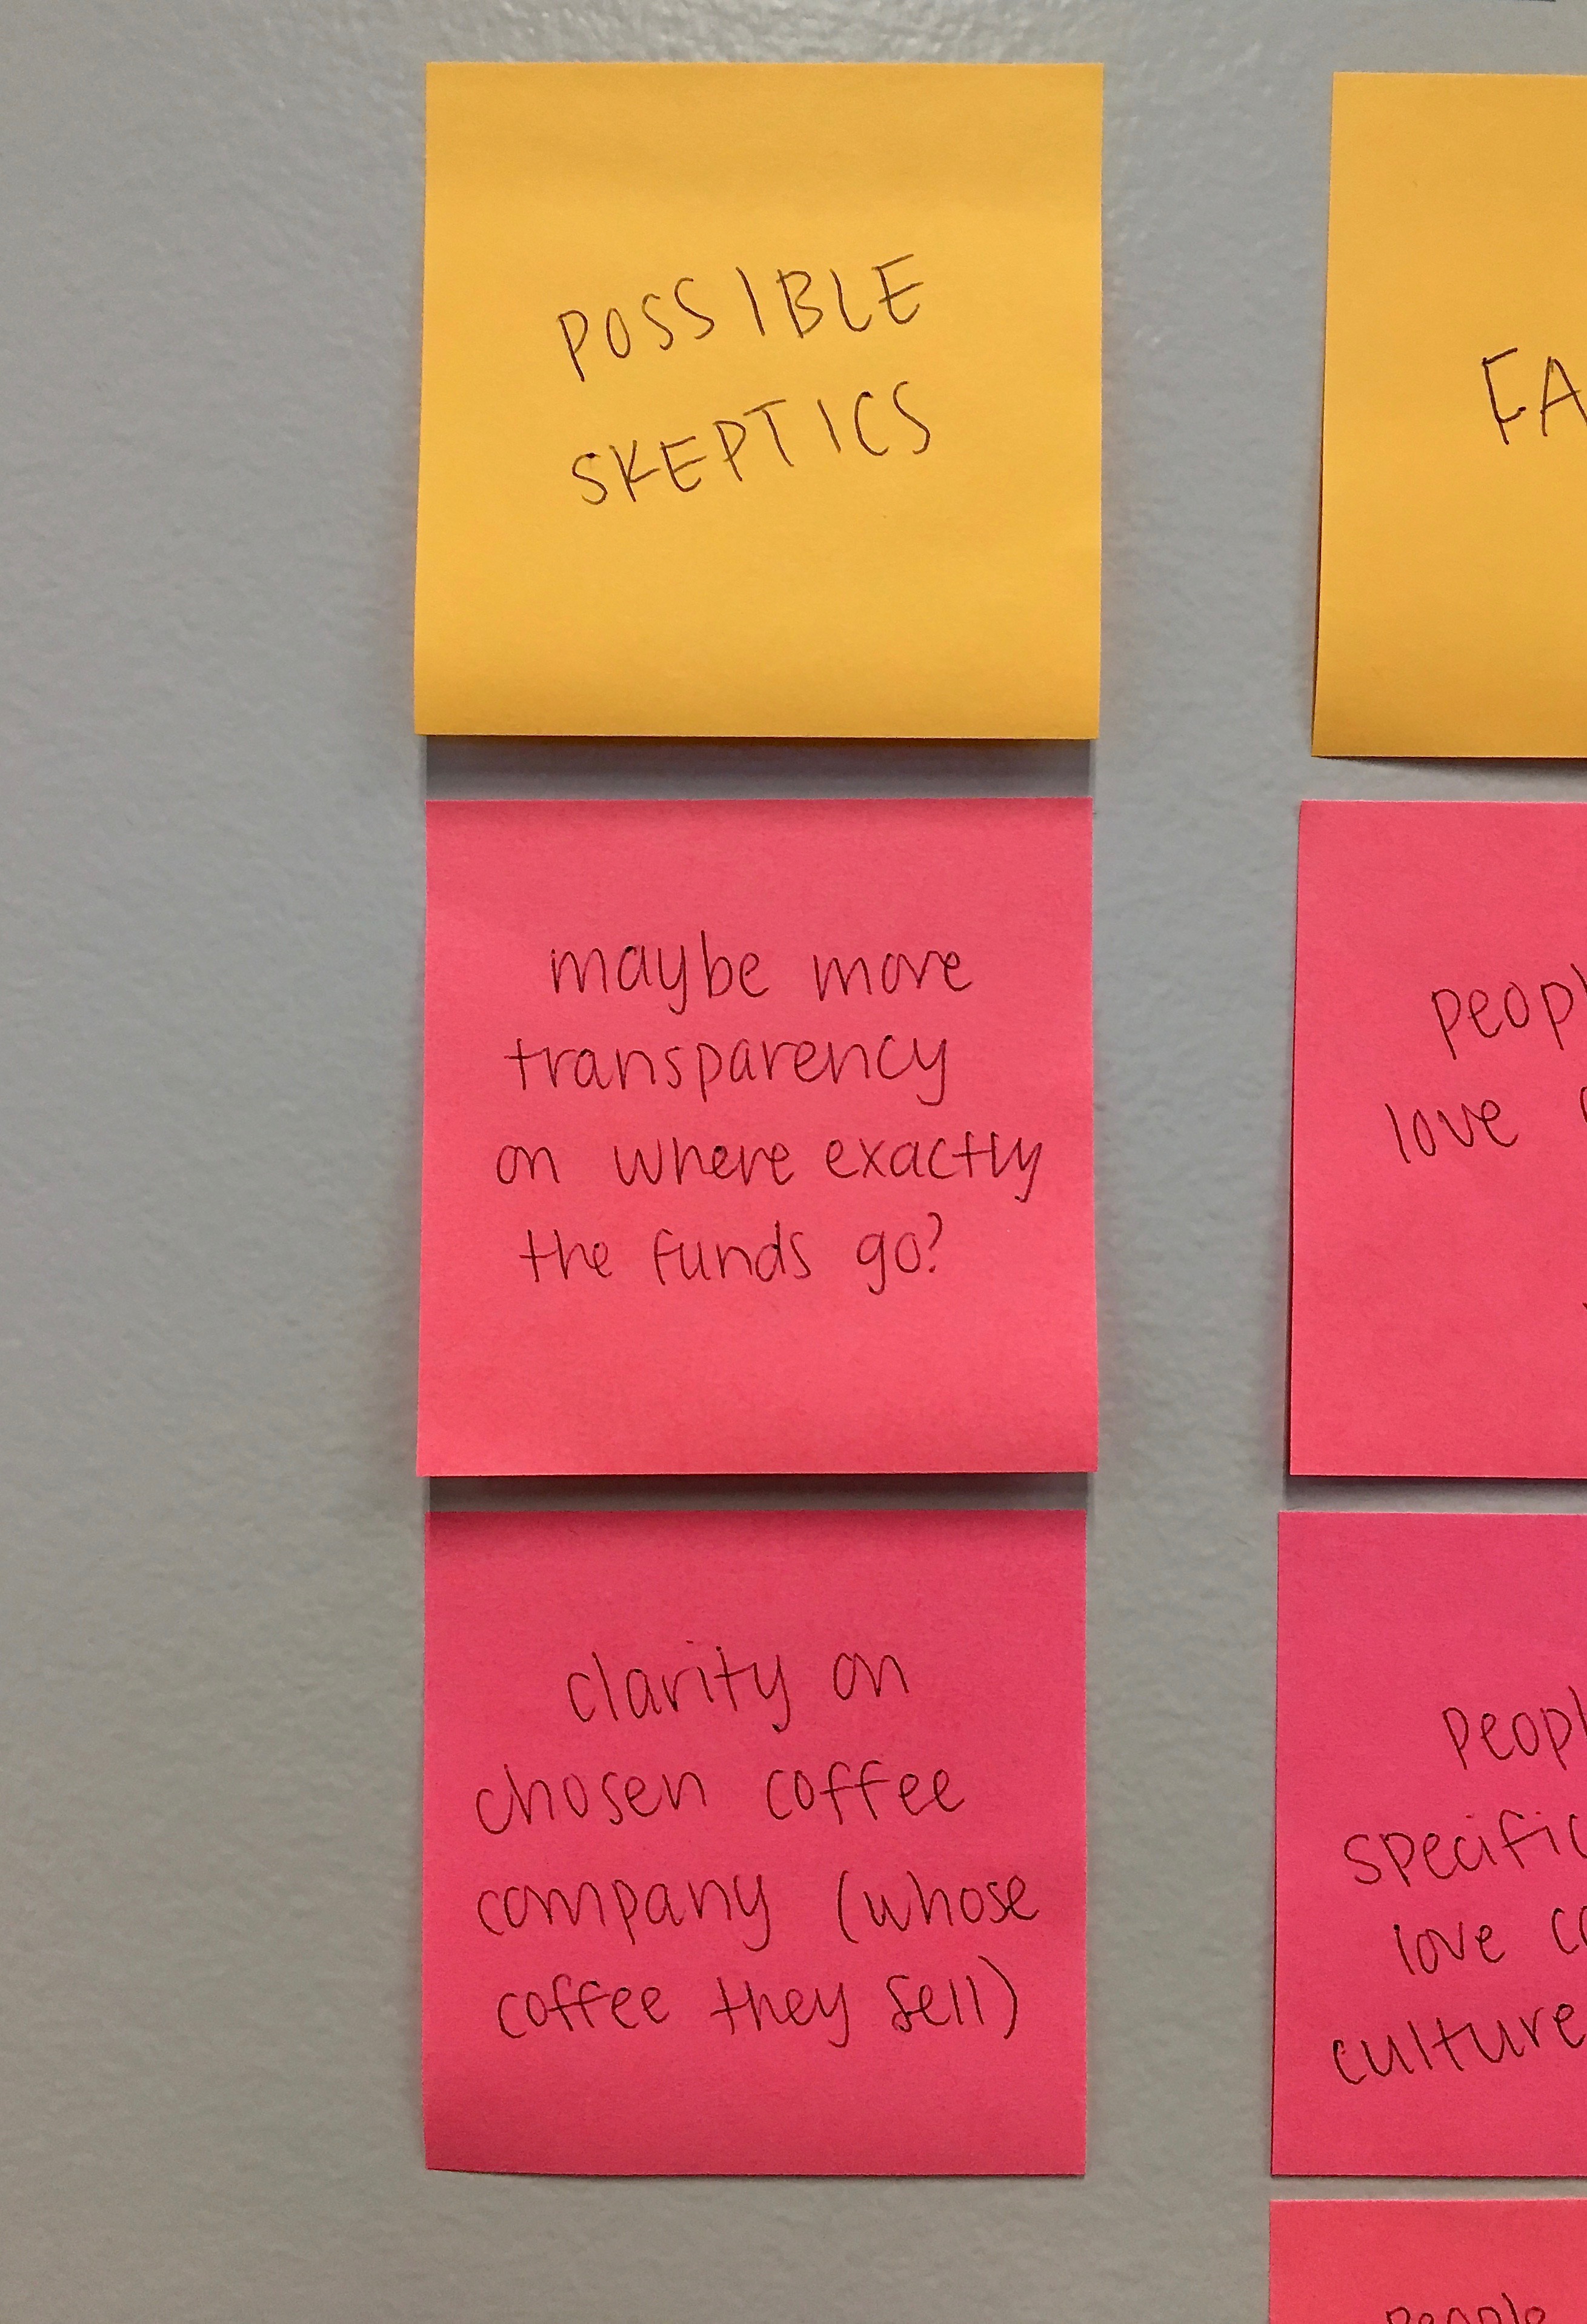 POSSIBLE
SKEPTICS
maybe more
transparency
on where exactly
the funds go?
clarity on
chosen coffee
company (whose
coffee they sell)
love
love
culture